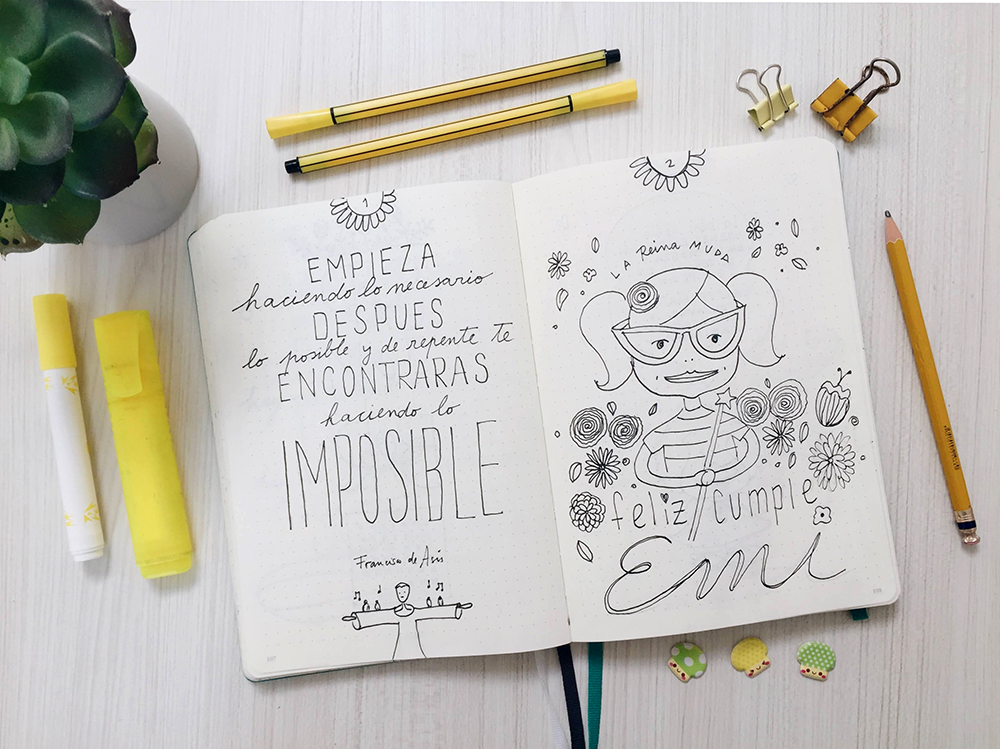 1
EMPIEZA
haciendo lo necesario
DESPUES
lo posible y de repente te
ENCONTRARAS
haciendo lo
IMPOSIBLE
Francisco de Asís
2
LA Reina MUDA
feliz cumple
Emi